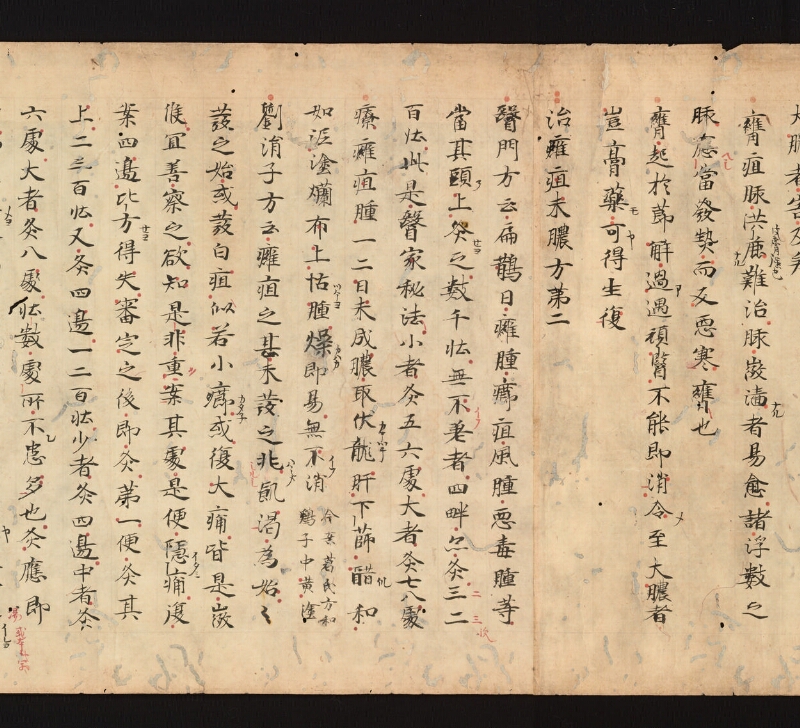 大脓者告及矣
癕疽脉洪麁難治脉㣲濇者易愈諸浮數之
脉應當發熱而反悪寒癕也
癕起於節解過遇頑醫不能即消令至大膿者
豈膏藥可得生復
治癰疽未膿方第二
醫門方云扁鵲曰癰腫癤疽風腫悪毒腫等
當其頭上灸之數千壮無不差者四畔亦灸三二
百壮此是醫家秘法小者灸五六處大者灸七八處
療癰疽腫一二日未成膿取伏龍肝下篩醋和
如泥塗爛布上怗腫燥即易無不消
今案葛氏方和
鷄子中黄塗
劉涓子方云癰疽之甚未發之兆飢渇為始〻
發之始或發白疽似若小癤或復大痛皆是㣲
候冝善察之欲知是非重案其處是便隱痛復
案四邉比方得失審定之後即灸第一便灸其
上二三百壮又灸四邉一二百壮少者灸四邉中者灸
六處大者灸八處壮數處所不患多也灸應即